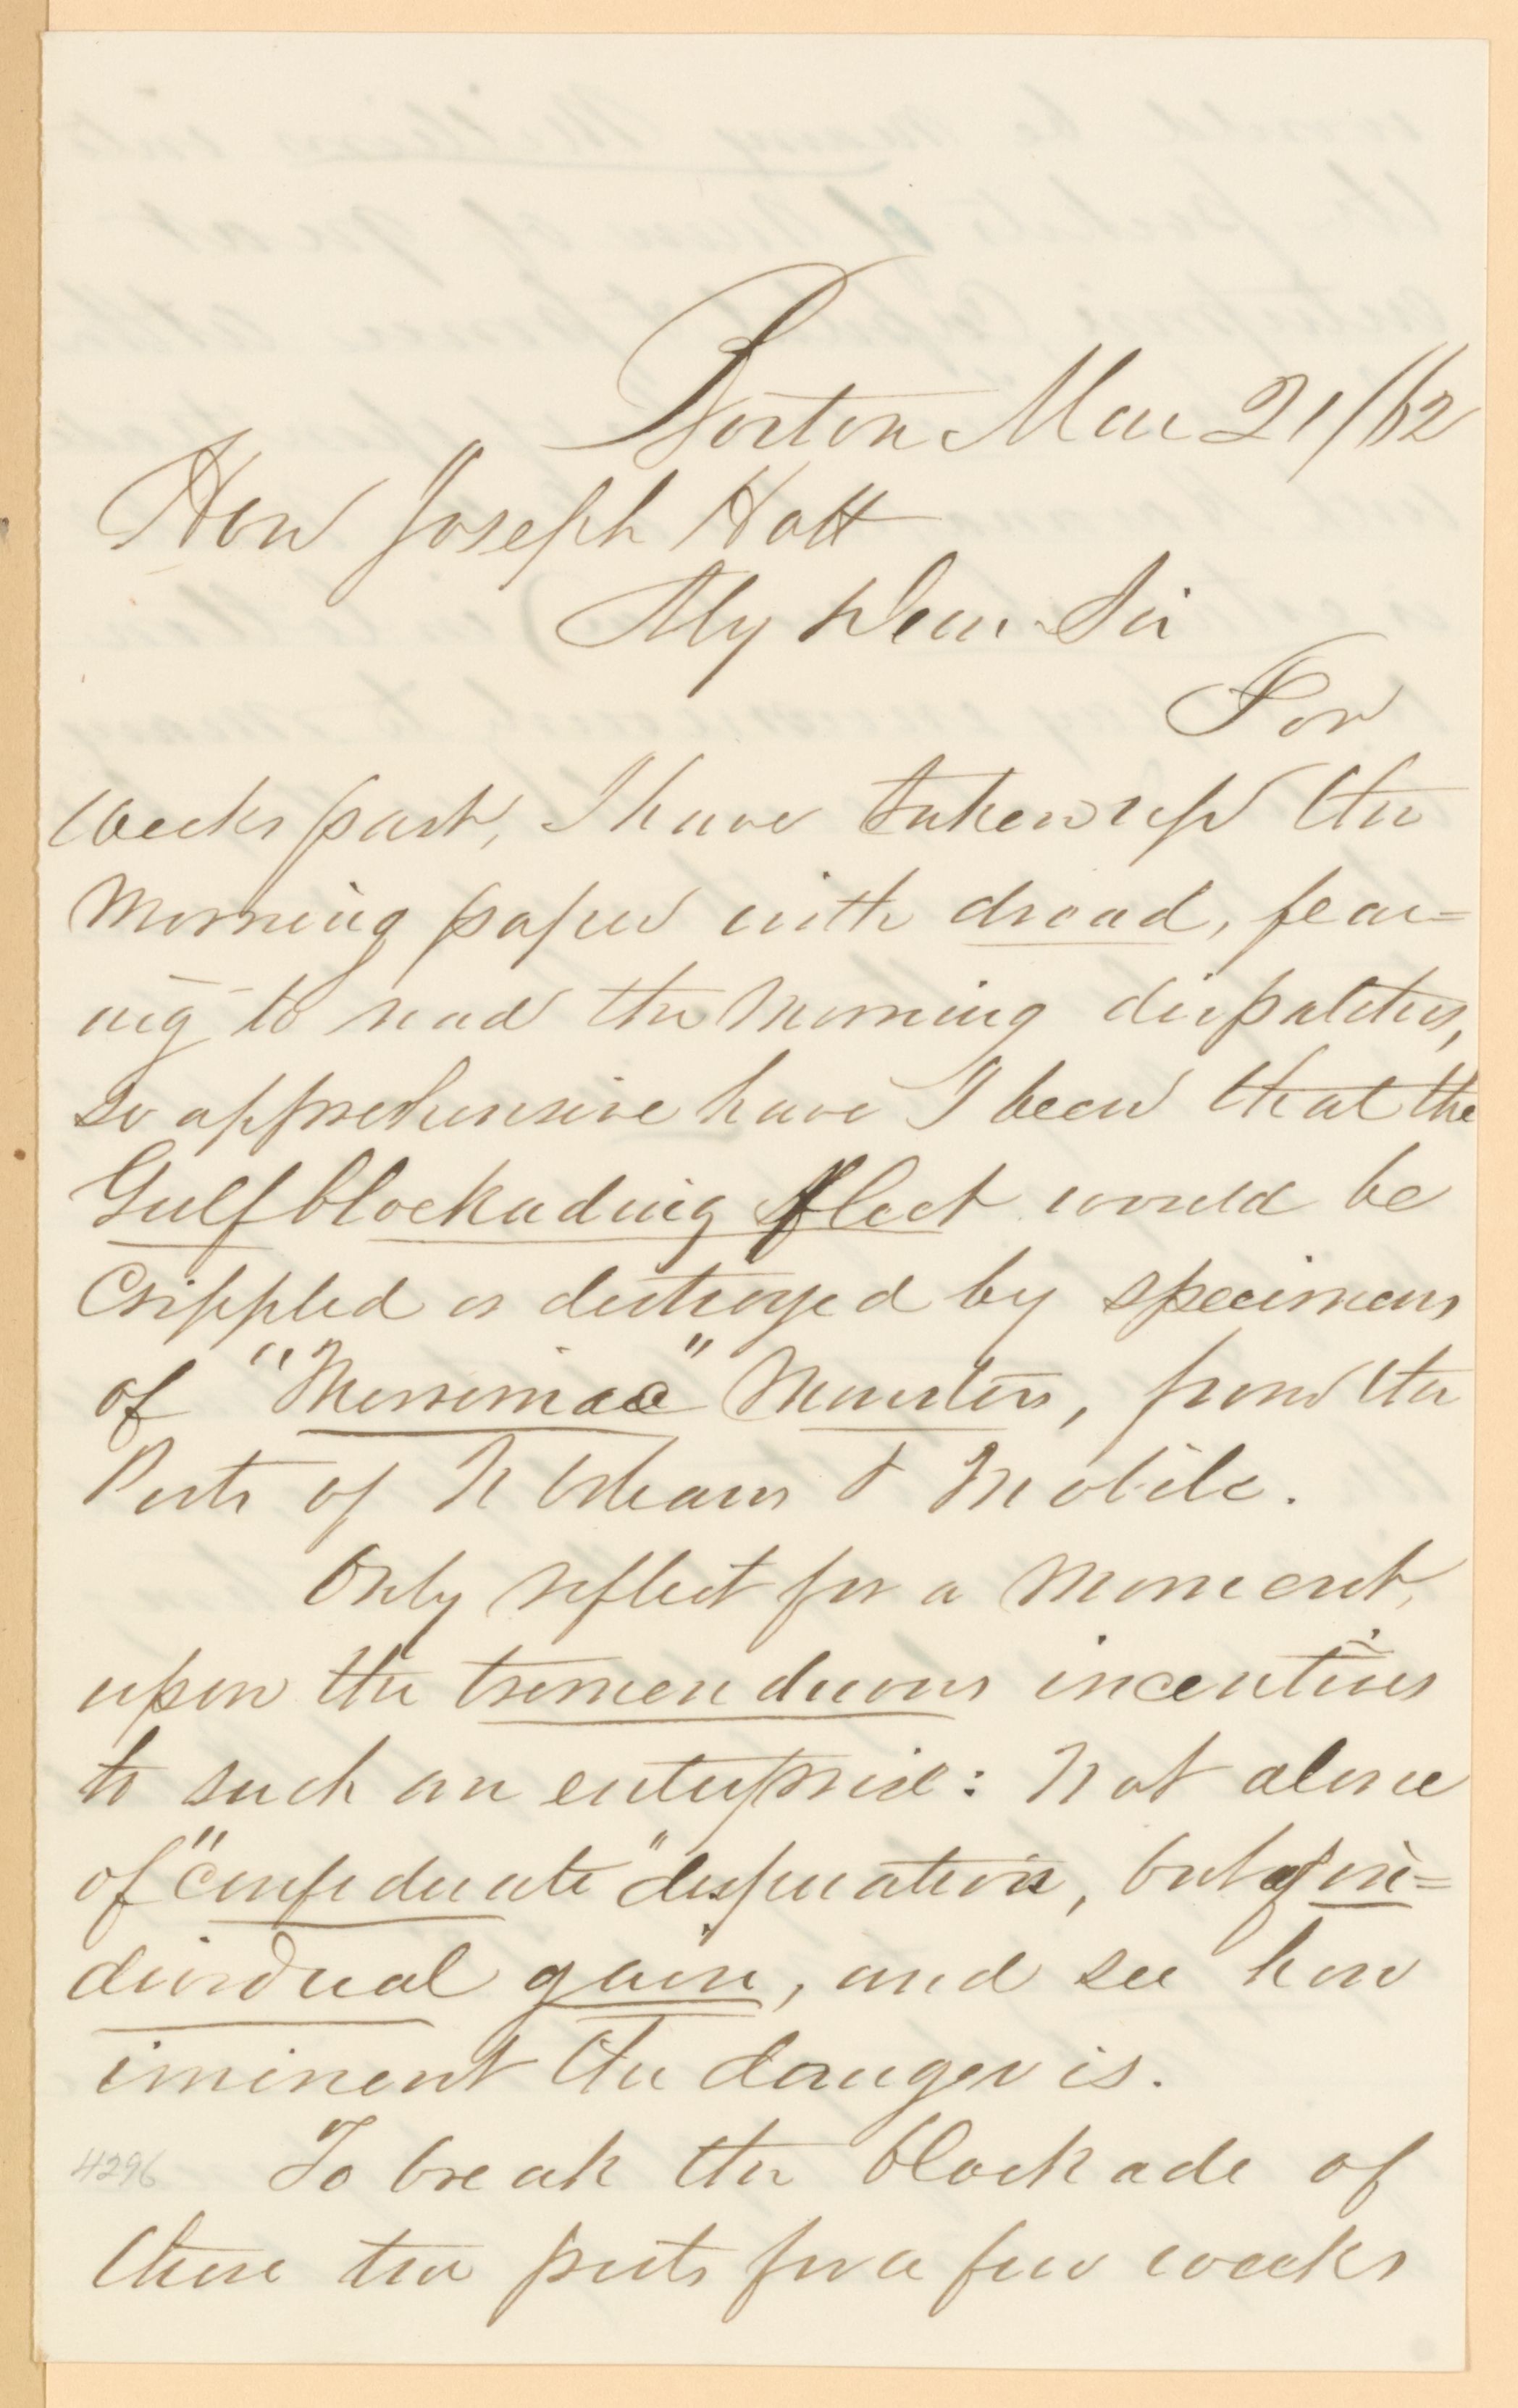 Boston Mar 21/62
Hon Joseph Holt
My Dear Sir
For
weeks past, I have taken up the
morning paper with dread, fear=
ing to read the morning dispatches,
so apprehensive have I been that the
Gulf blockading fleet would be
Crippled or destroyed by specimens
of "Merrimac" Monsters, from the
Ports of N Orleans & Mobile.
Only reflect for a moment,
upon the tremenduous incentives
to such an enterprise: Not alone
of "confederate" desperation, but of in=
dividual gain, and see how
iminent the danger is.
4296 To break the blockade of
these two ports for a few weeks